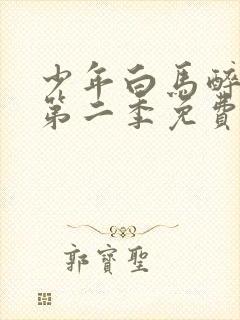 少年白馬醉
第二季免費
郭寶聖